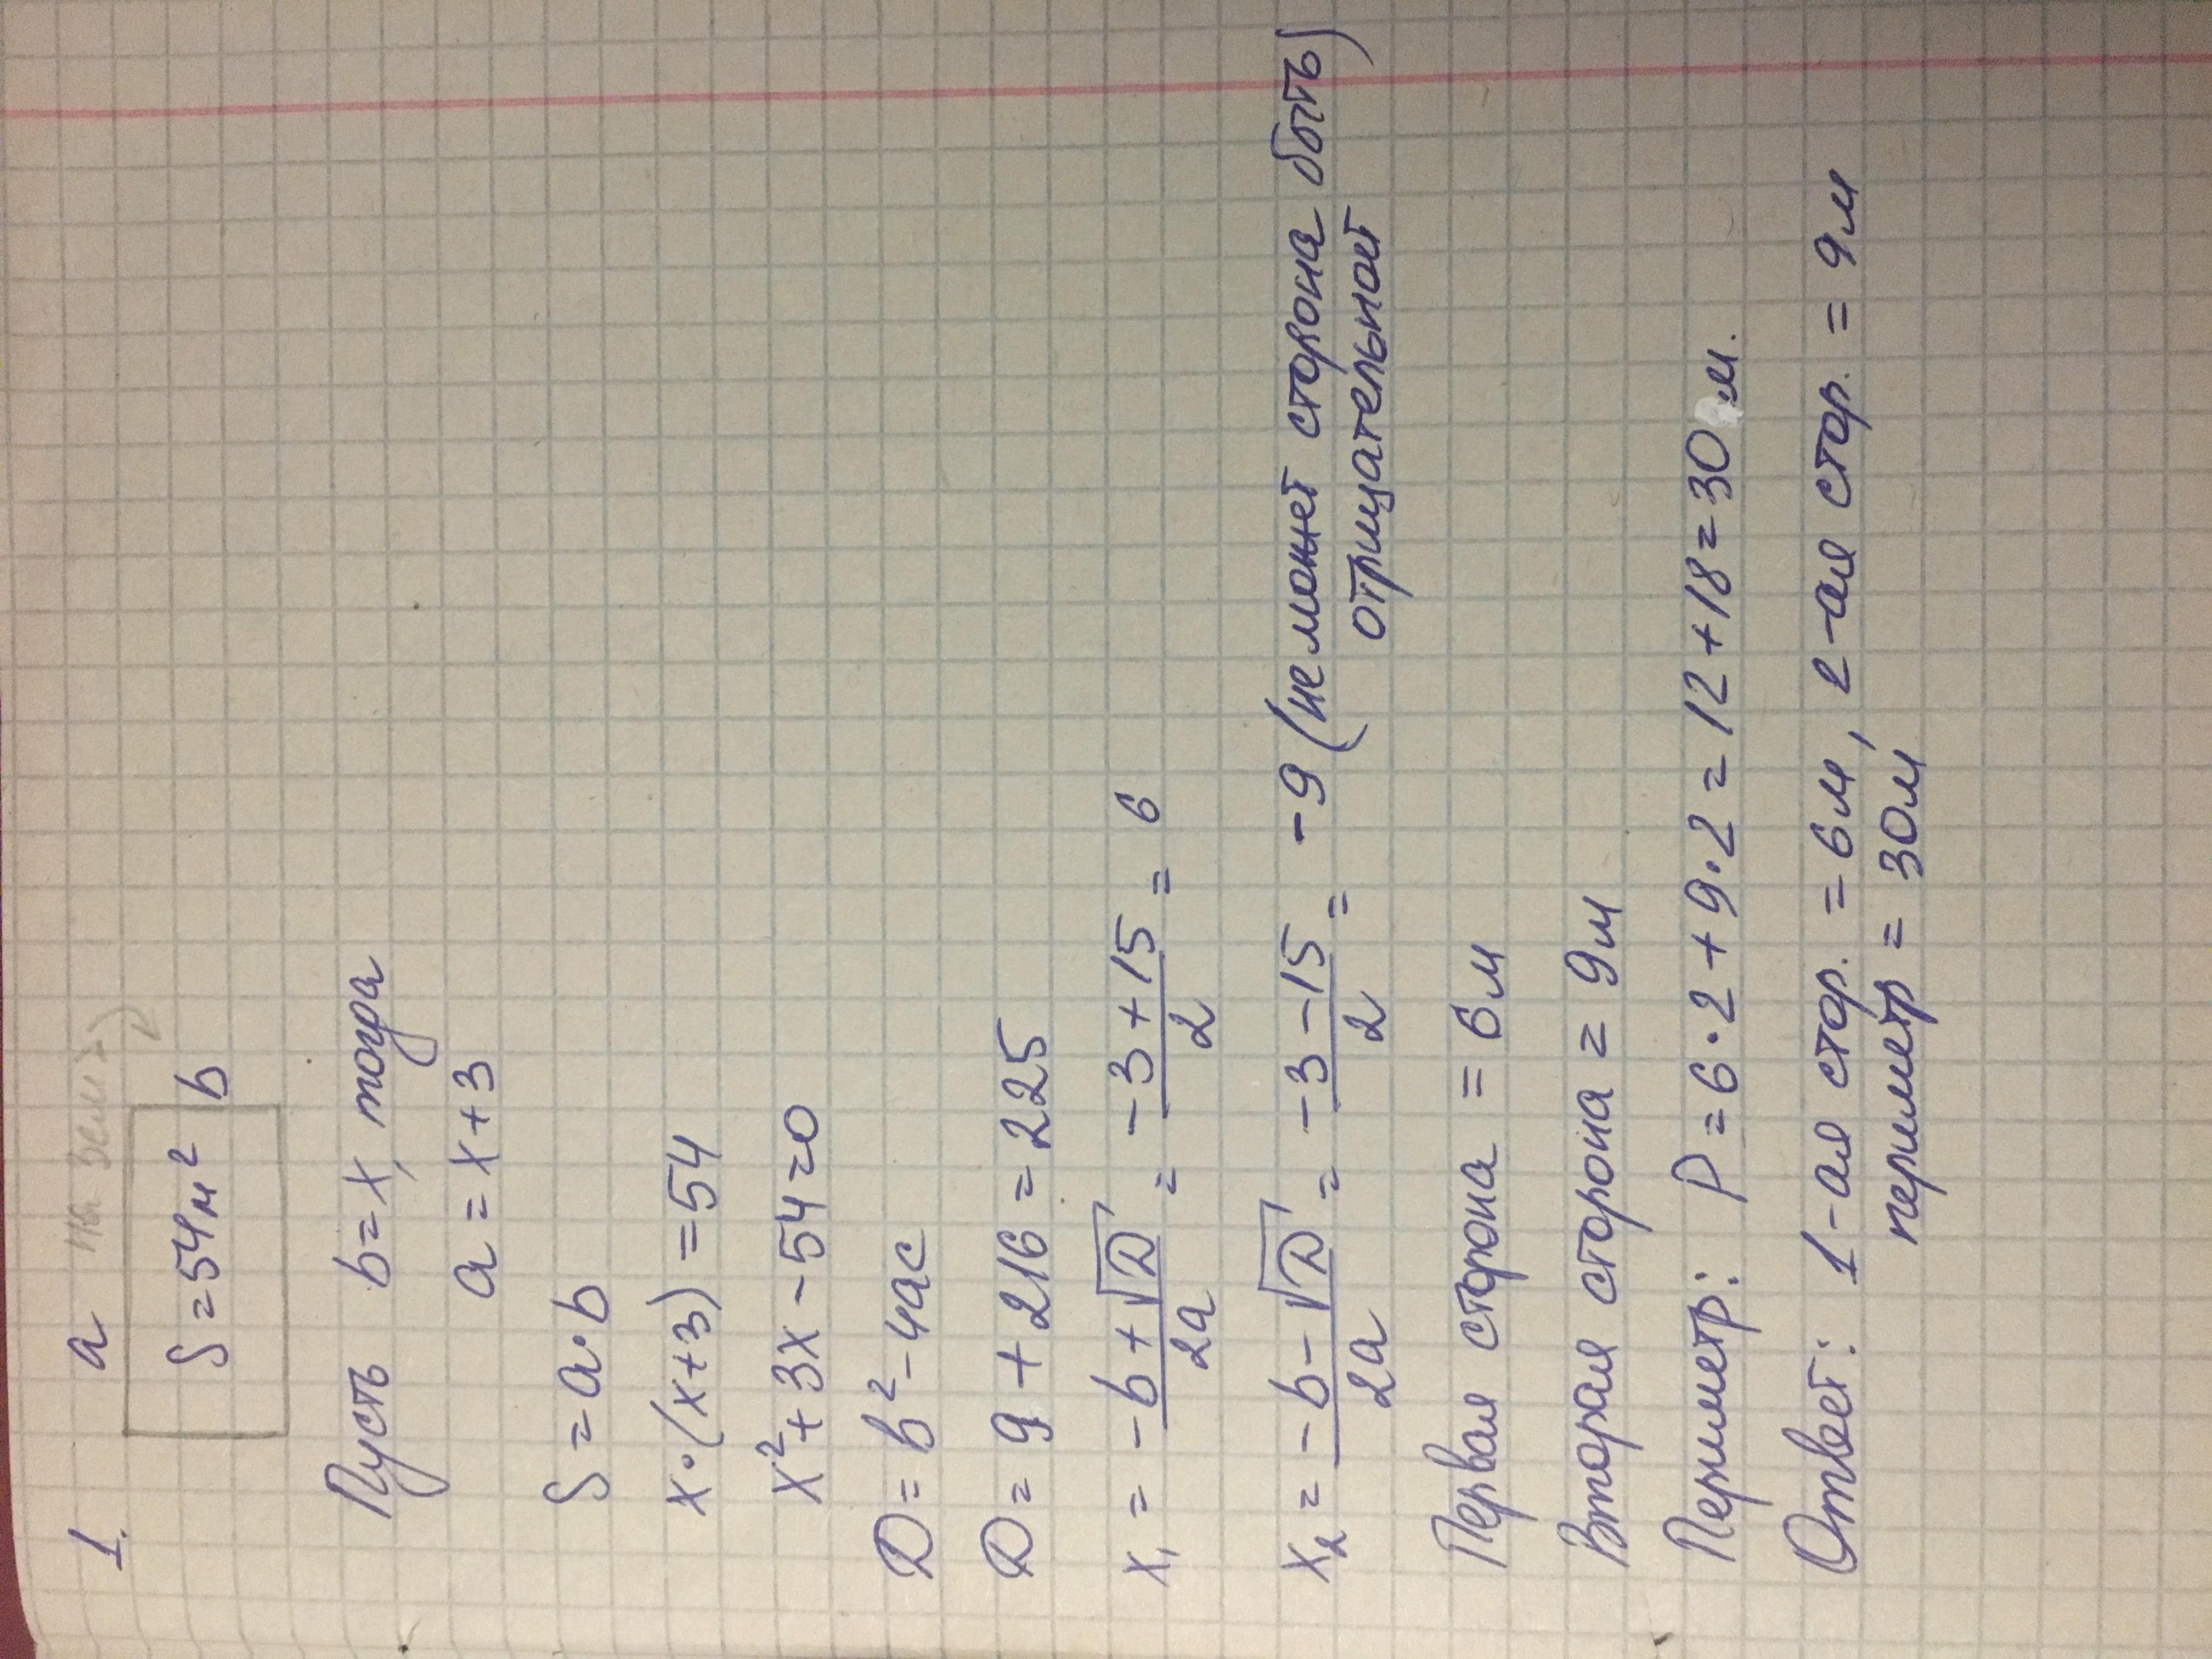 1. a
S = 54м² b
Пусть b = x, тогда
a = x + 3
S = a · b
x · (x + 3) = 54
x² + 3x - 54 = 0
D = b² - 4ac
D = 9 + 216 = 225
x₁ = (-b + √D) / 2a = (-3 + 15) / 2 = 6
x₂ = (-b - √D) / 2a = (-3 - 15) / 2 = -9 (не может сторона быть
отрицательной)
Первая сторона = 6м
Вторая сторона = 9м
Периметр: P = 6 · 2 + 9 · 2 = 12 + 18 = 30 м.
Ответ: 1-ая стор. = 6м, 2-ая стор. = 9м
периметр = 30м